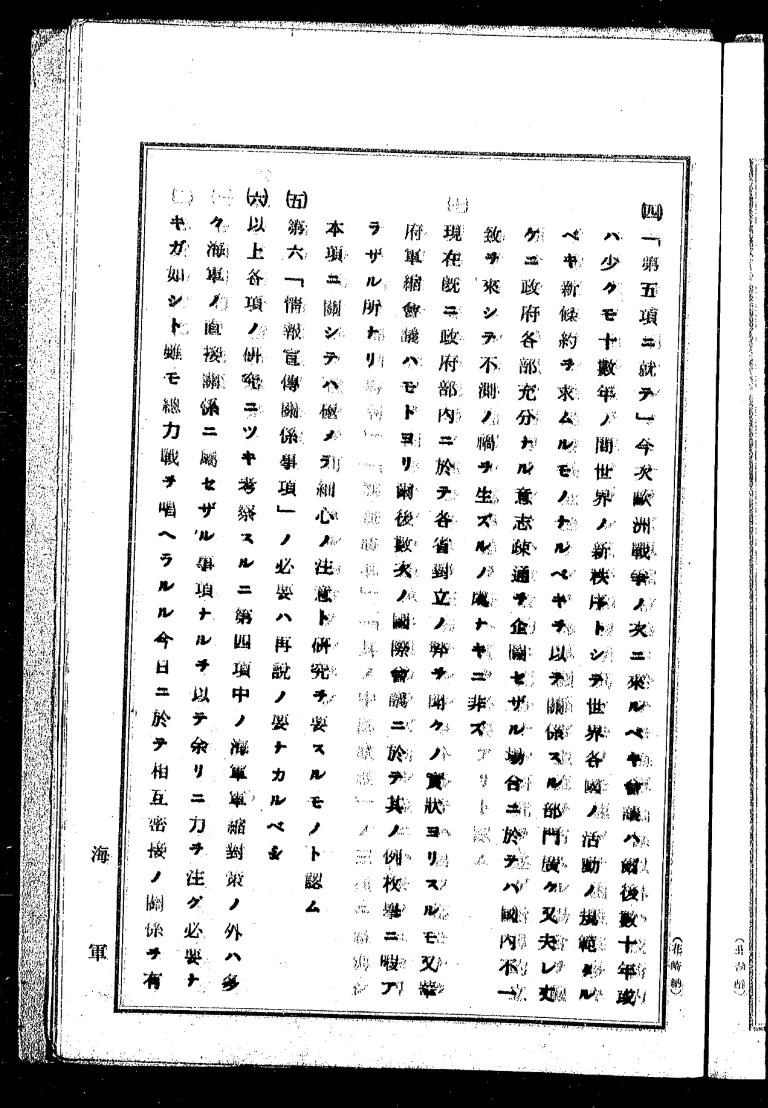 ㈣「第五項ニ就テ」今次歐洲戰爭ノ次ニ來ルベキ會議ハ爾後數十年或
ハ少クモ十數年ノ間世界ノ新秩序トシテ世界各國ノ活動ノ規範タル
ベキ新條約ヲ求ムルモノナルベキヲ以テ關係スル部門廣ク又夫レ丈
ケニ政府各部充分ナル意志疎通ヲ企圖セザル場合ニ於テハ國內不一
致ヲ來シテ不測ノ禍ヲ生ズルノ虞ナキニ非ズ
現在既ニ政府部內ニ於テ各省對立ノ弊ヲ聞クノ實狀ヨリスルモ又華
府軍縮會議ハモトヨリ爾後數次ノ國際會議ニ於テ其ノ例枚擧ニ暇ア
ラザル所ナリ
本項ニ關シテハ極メテ細心ノ注意ト硏究ヲ要スルモノト認ム
㈤第六「情報宣傳關係事項」ノ必要ハ再說ノ要ナカルベシ
㈥以上各項ノ硏究ニツキ考察スルニ第四項中ノ海軍軍縮對策ノ外ハ多
ク海軍ノ直接關係ニ屬セザル事項ナルヲ以テ余リニ力ヲ注グ必要ナ
キガ如シト雖モ總力戰ヲ唱ヘラルル今日ニ於テ相互密接ノ關係ヲ有
海軍